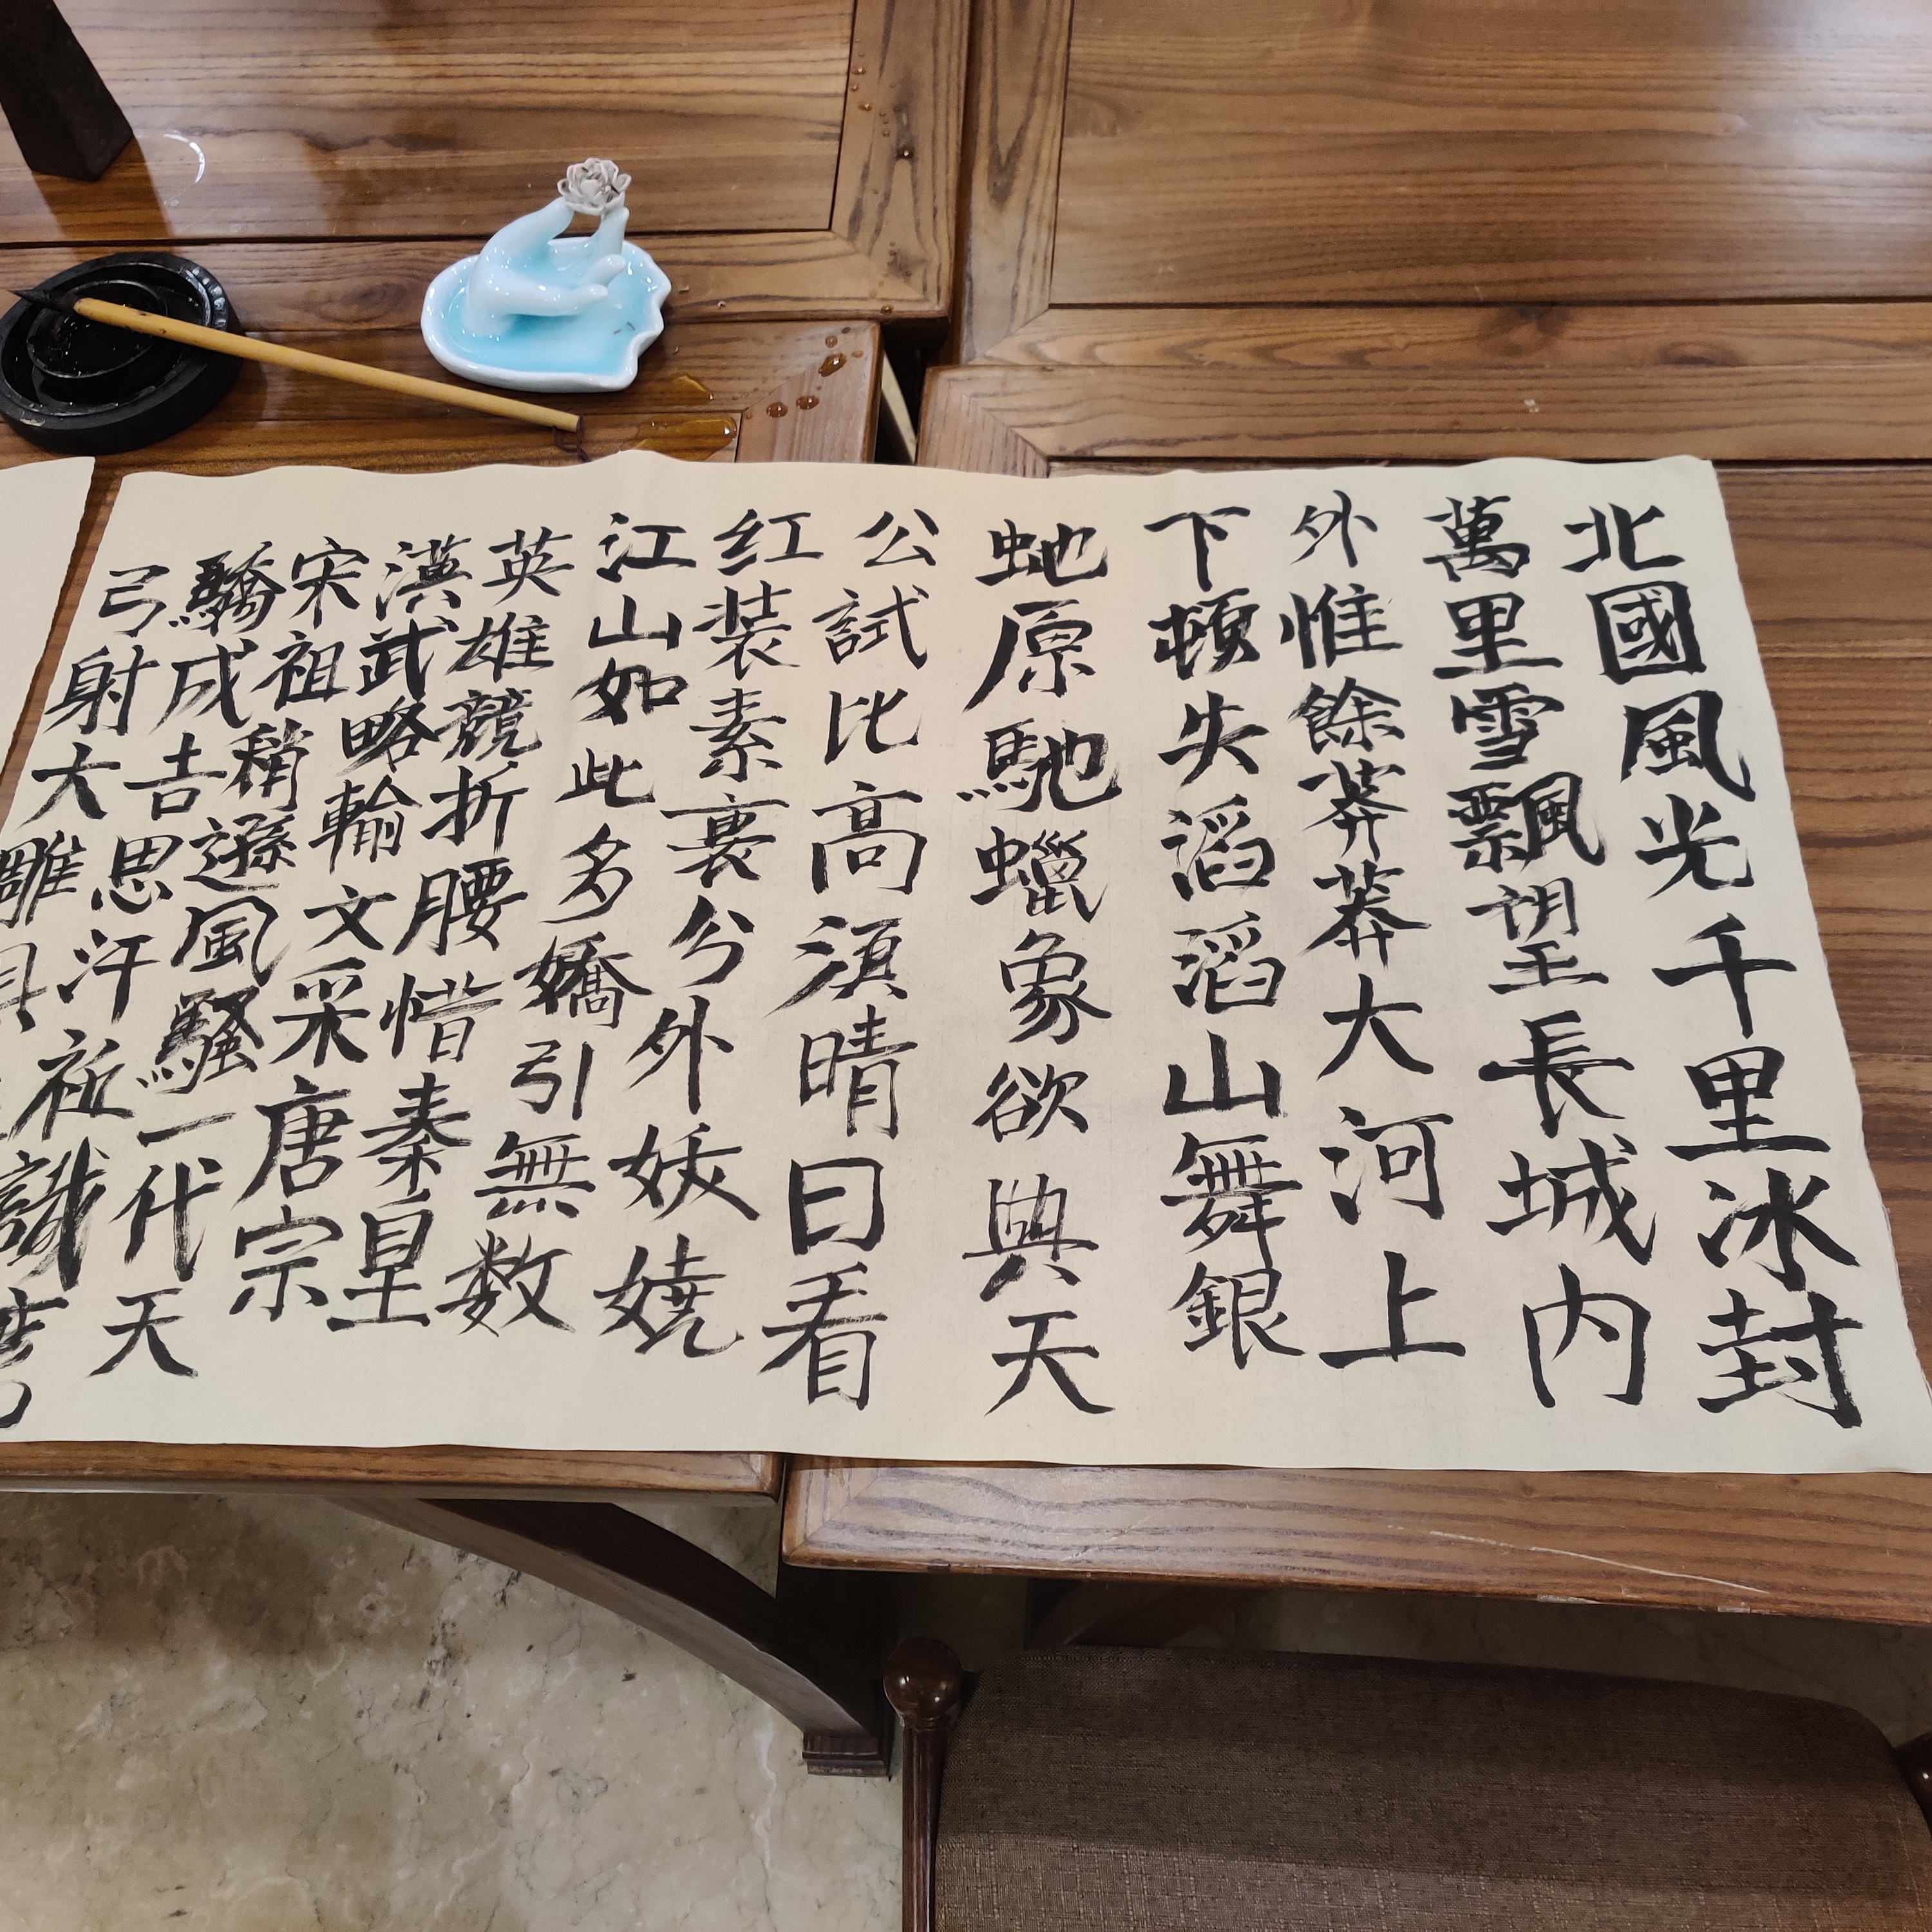 北國風光千里冰封
萬里雪飄望長城内
外惟餘莽莽大河上
下頓失滔滔山舞銀
虵原馳蠟象欲與天
公試比高須晴日看
红装素裹兮外妖嬈
江山如此多嬌引無数
英雄競折腰惜秦皇
漢武略輸文采唐宗
宋祖稍遜風騷一代天
驕成吉思汗
弓射大雕
識